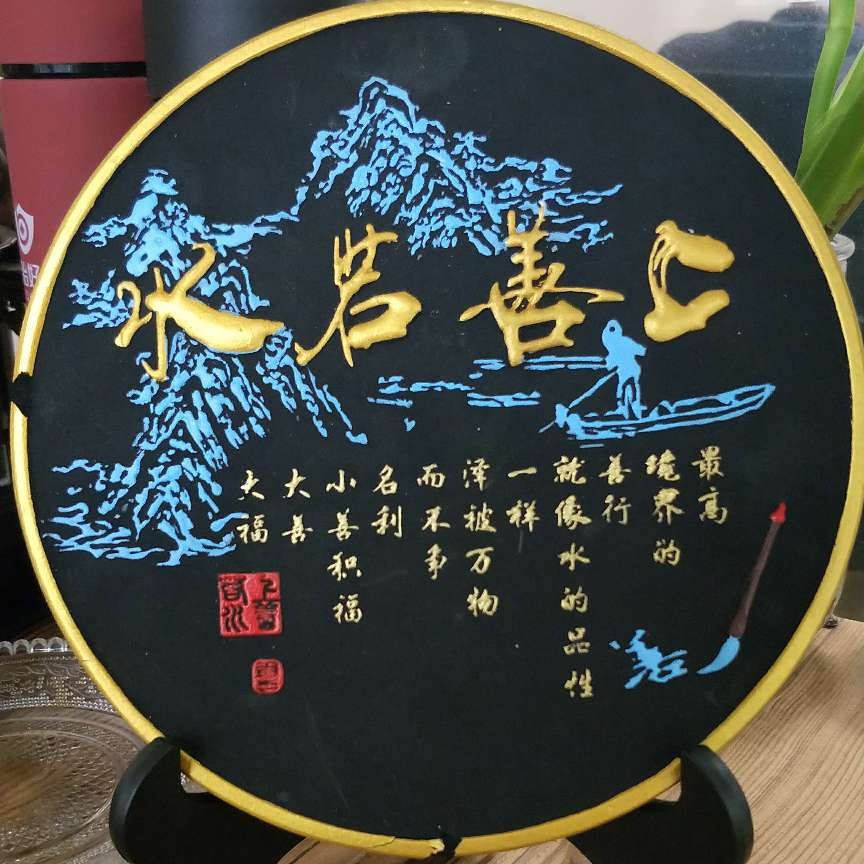 上善若水
最高
境界的
善行
就像水的品性
一样
泽被万物
而不争
名利
小善积福
大善
大福
上善若水
善